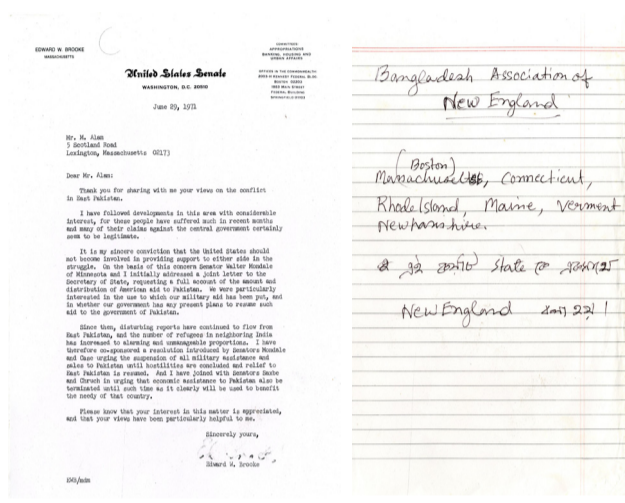 EDWARD W. BROOKE
MASSACHUSETTS
COMMITTEES
APPROPRIATIONS
BANKING, HOUSING AND
URBAN AFFAIRS
United States Senate
WASHINGTON, D.C. 20510
OFFICES IN THE COMMONWEALTH
BOSTON, 02203
1883 MAIN STREET
FEDERAL BUILDING
SPRINGFIELD 01103
June 29, 1971
Mr. M. Alam
5 Scotland Road
Lexington, Massachusetts 02173
Dear Mr. Alam:
Thank you for sharing with me your views on the conflict
in East Pakistan.
I have followed developments in this area with considerable
interest, for these people have suffered much in recent months
and many of their claims against the central government certainly
seem to be legitimate.
It is my sincere conviction that the United States should
not become involved in providing support to either side in the
struggle. On the basis of this concern Senator Walter Mondale
of Minnesota and I initially addressed a joint letter to the
Secretary of State, requesting a full account of the amount and
distribution of American aid to Pakistan. We were particularly
interested in the use to which our military aid has been put, and
in whether our government has any present plans to resume such
aid to the government of Pakistan.
Since then, disturbing reports have continued to flow from
East Pakistan, and the number of refugees in neighboring India
has increased to alarming and unmanageable proportions. I have
therefore co-sponsored a resolution introduced by Senators Mondale
and Case urging the suspension of all military assistance and
sales to Pakistan until hostilities are concluded and relief to
East Pakistan is resumed. And I have joined with Senators Saxbe
and Church in urging that economic assistance to Pakistan also be
terminated until such time as it clearly will be used to benefit
the needy of that country.
Please know that your interest in this matter is appreciated,
and that your views have been particularly helpful to me.
Sincerely yours,
Edward W. Brooke
Bangladesh Association of
New England
(Boston)
Massachusetts, Connecticut,
Rhode Island, Maine, Vermont
Newhamshire.
এই কয়টি State কে একসাথে
New England বলা হয়।